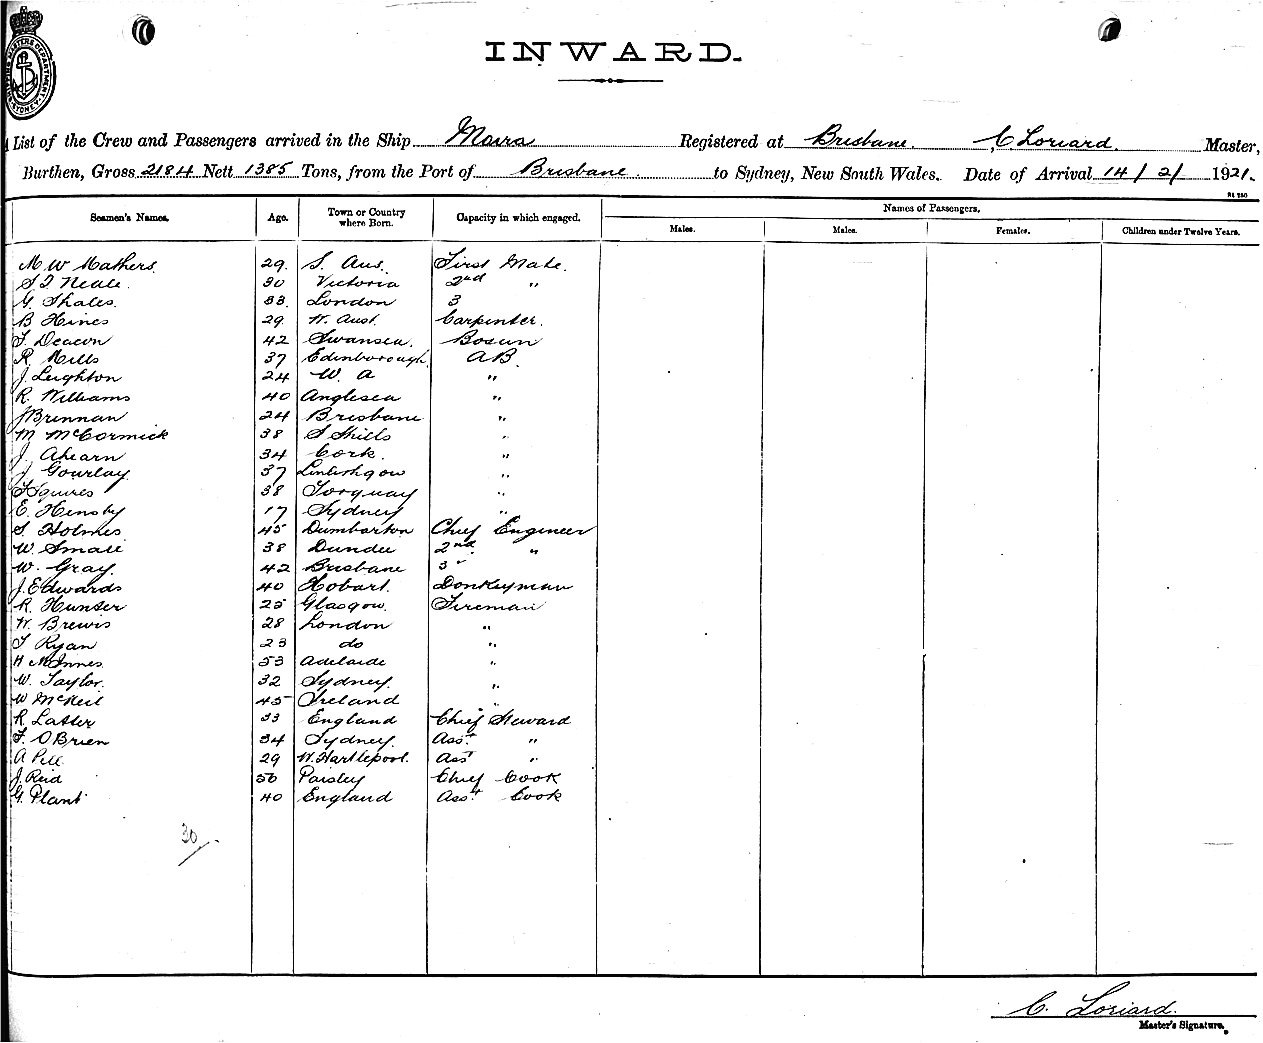 INWARD.
List of the Crew and Passengers arrived in the Ship Moira Registered at Brisbane. C Loriard. Master,
Burthen, Gross 2184 Nett 1385 Tons, from the Port of Brisbane to Sydney, New South Wales. Date of Arrival 14/2/1921.
Names of Passengers.
Seamen's Names. Age. Town or Country where Born. Capacity in which engaged. Males. Males. Females. Children under Twelve Years.
M. W Mathers. 29. S. Aus. First Mate.
Neale. 30 Victoria 2nd "
G. Shales. 33. London 3
B Hines 29. W. Aust. Carpenter.
Deacon 42 Swansea. Bosun
R. Mills 37 Edinborough. AB.
J. Leighton 24 W. A "
R. Williams 40 Anglesea "
J Brennan 24 Brisbane "
M McCormick 38 S Shills "
J. Ahearn 34 Cork. "
J Gourlay 37 Linlithgow "
Squires 38 Torquay "
E. Hensby 17 Sydney "
S. Holmes 45 Dumbarton Chief Engineer
W. Small 38 Dundee 2nd "
W. Gray. 42 Brisbane 3 "
J. Edwards 40 Hobart. Donkeyman
R. Hunter 25 Glasgow. Fireman
W. Brewis 28 London "
T Ryan 23 do "
H McInnes. 53 Adelaide "
W. Taylor. 32 Sydney. "
W McNeil 45 Ireland "
R Latter 33 England Chief Steward
F. OBrien 34 Sydney. Asst "
A Pell 29 W. Hartlepool. Asst "
J. Reid 56 Paisley Chief Cook
G. Plant 40 England Asst Cook
30
C. Loriard.
Master's Signature.